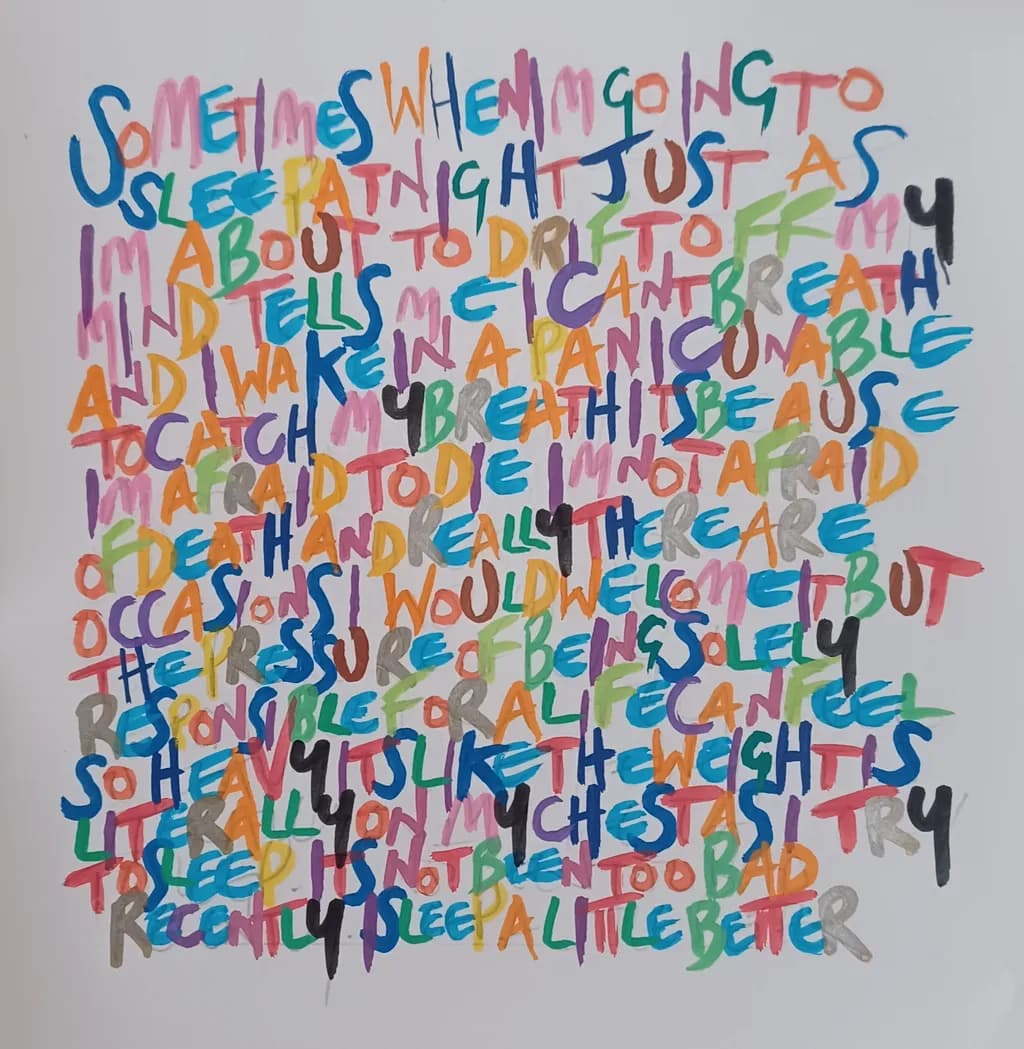 SOMETIMES WHEN IM GOING TO
SLEEP AT NIGHT JUST AS
IM ABOUT TO DRIFT OFF MY
MIND TELLS ME I CANT BREATH
AND I WAKE IN A PANIC UNABLE
TO CATCH MY BREATH ITS BEAUSE
IM AFRAID TO DIE IM NOT AFRAID
OF DEATH AND REALLY THERE ARE
OCCASIONS I WOULD WELCOME IT BUT
THE PRESSURE OF BEING SOLELY
RESPONSIBLE FOR A LIFE CAN FEEL
SO HEAVY ITS LIKE THE WEIGHT IS
LITERALLY ON MY CHEST AS I TRY
TO SLEEP. ITS NOT BEEN TOO BAD
RECENTLY I SLEEP A LITTLE BETTER